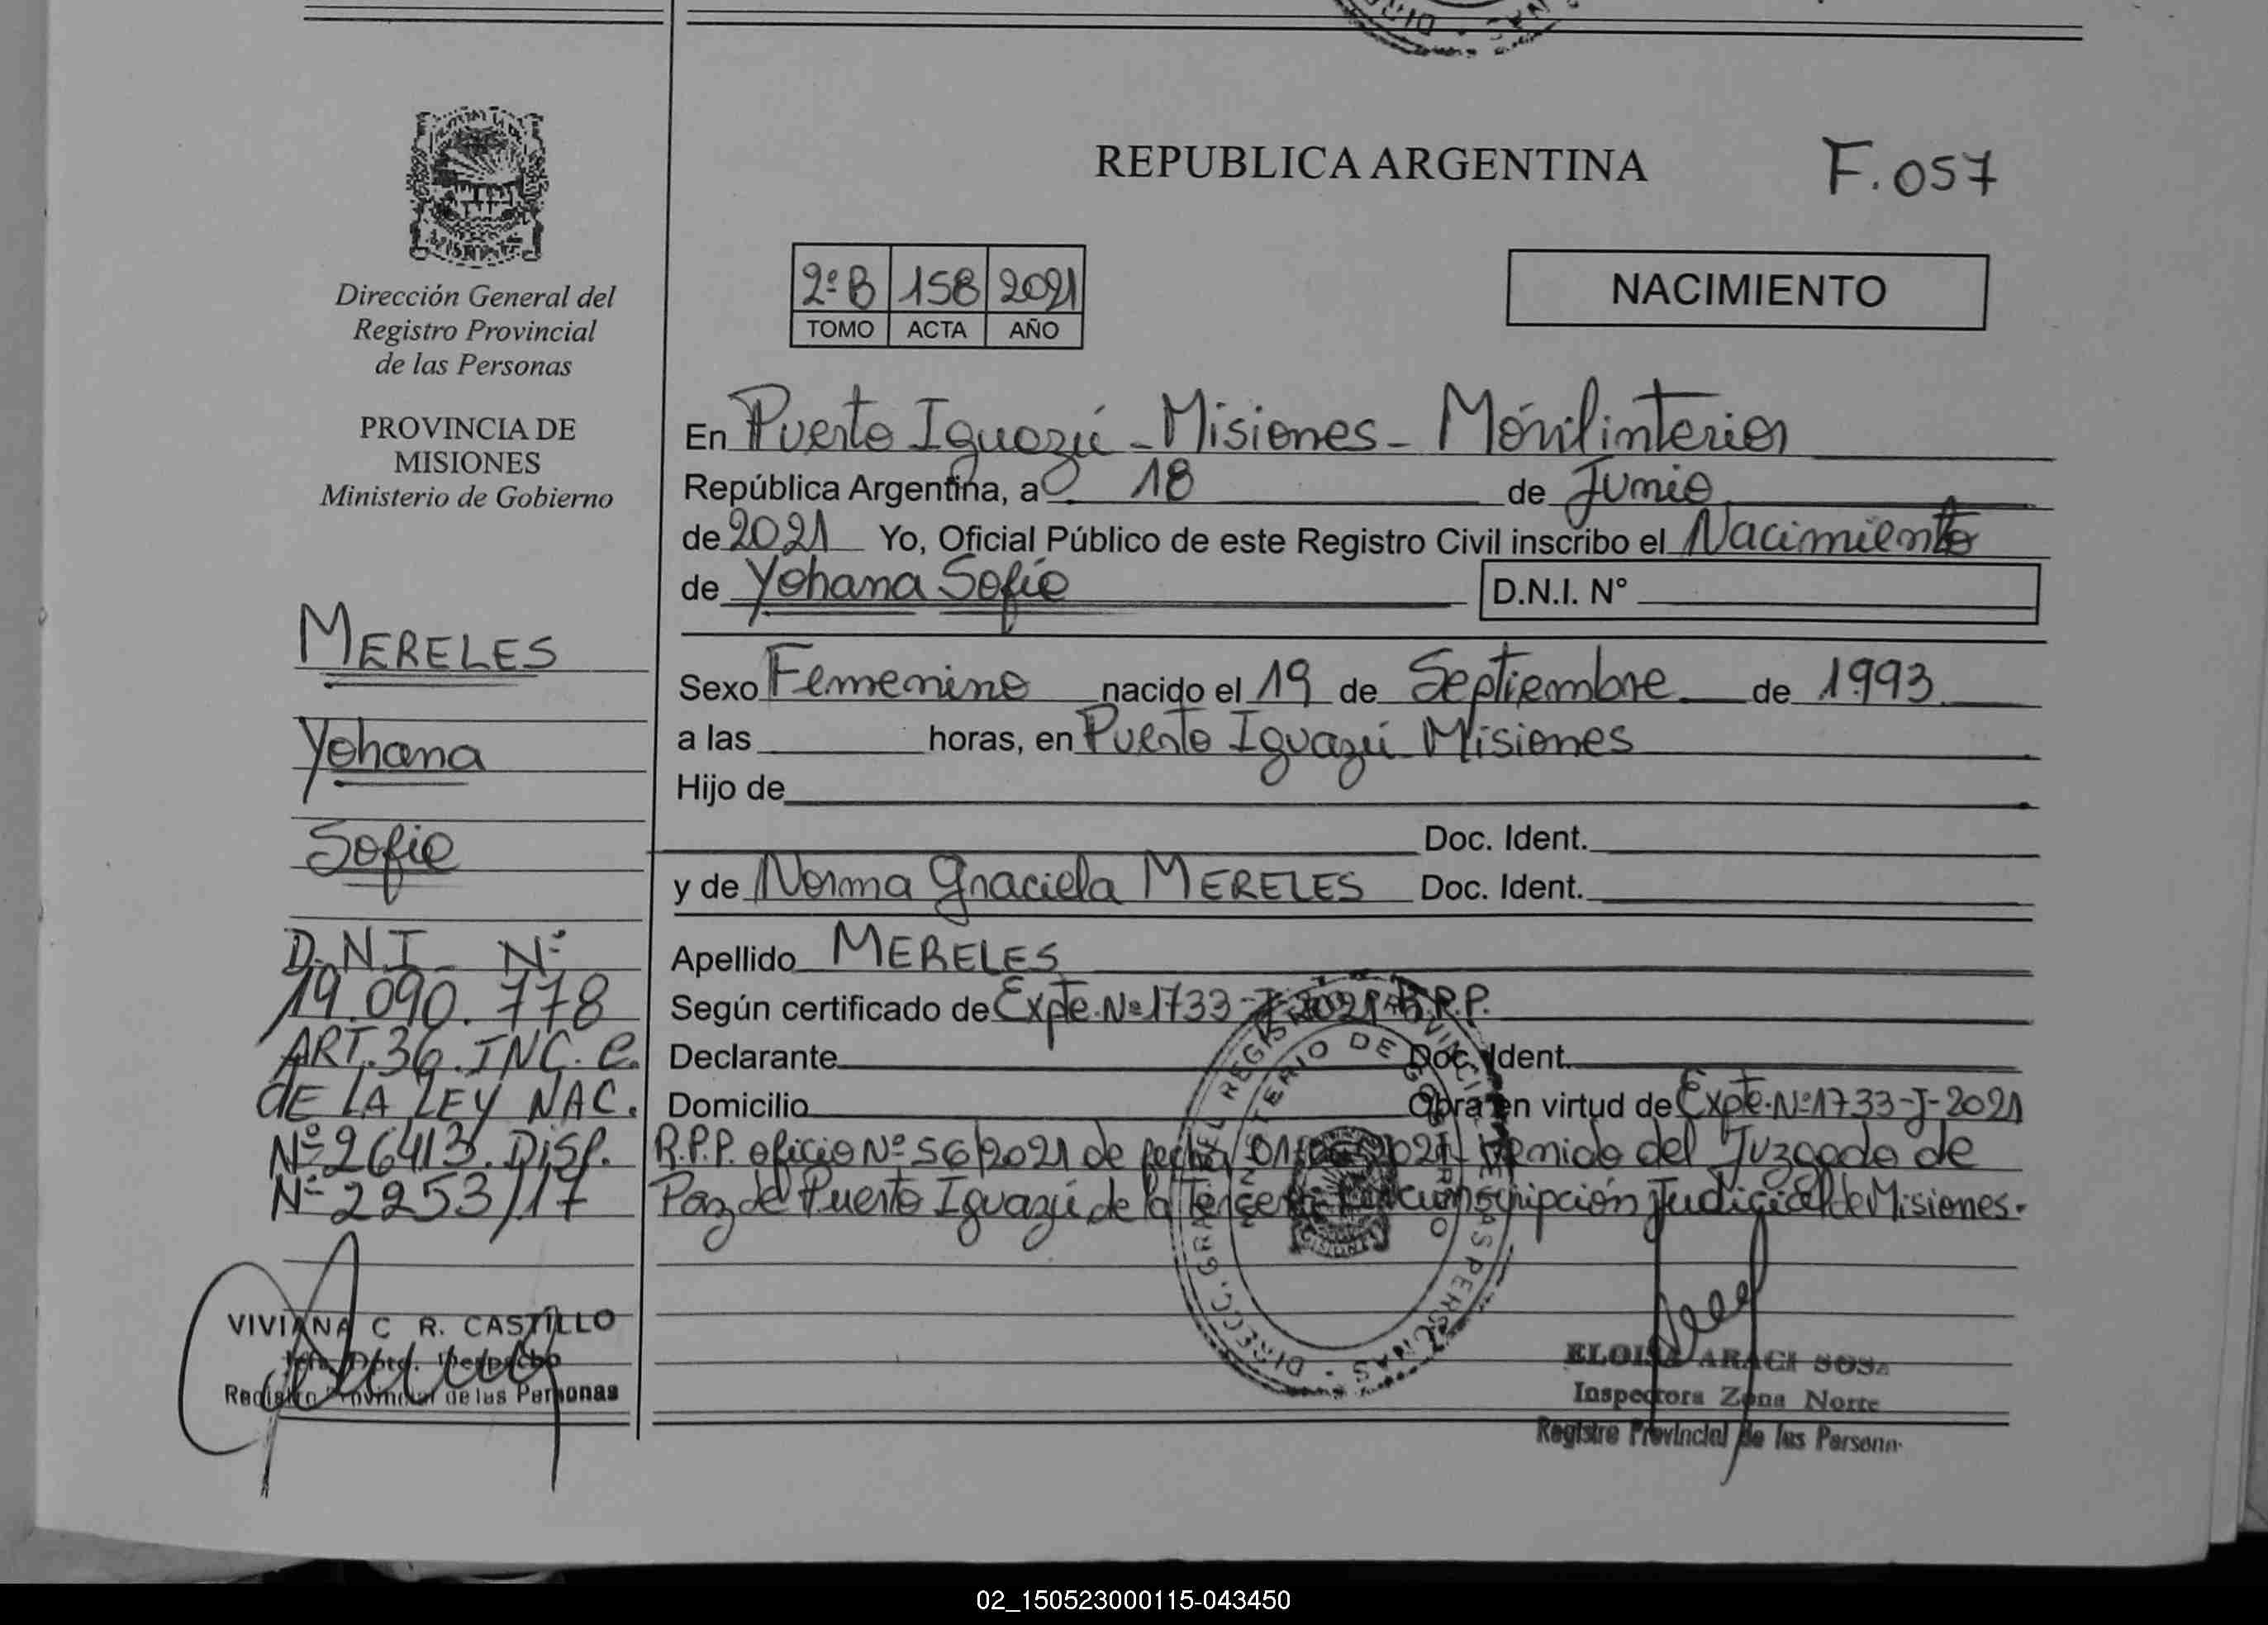 REPUBLICA ARGENTINA
F.057
Dirección General del
Registro Provincial
de las Personas
PROVINCIA DE
MISIONES
Ministerio de Gobierno
MERELES
Yohana
Sofie
D.N.I Nº
19.090.778
ART.36.INC.e.
dE LA LEY NAC.
Nº26413.DiSP.
Nº 2253/17
VIVIANA C R. CASTILLO
Jefa Dpto. Despacho
Registro Provincial de las Personas
2ºB 158 2021
TOMO ACTA AÑO
NACIMIENTO
En Puerto Iguazú - Misiones - Móvil interior
República Argentina, a 18 de Junio
de 2021 Yo, Oficial Público de este Registro Civil inscribo el Nacimiento
de Yohana Sofie D.N.I. Nº
Sexo Femenino nacido el 19 de Septiembre de 1993
a las horas, en Puerto Iguazú Misiones
Hijo de
Doc. Ident.
y de Norma Graciela MERELES Doc. Ident.
Apellido MERELES
Según certificado de Expte.Nº1733-J-2021 R.P.P.
Declarante Doc. Ident.
Domicilio Obra en virtud de Expte.Nº1733-J-2021
R.P.P. oficio Nº 56/2021 de fecha 01/ 2021 del Juzgado de
Paz de Puerto Iguazú de la Tercera Circunscripción Judicial de Misiones.
ELOISA ARACI SOSA
Inspectora Zona Norte
Registro Provincial de las Person
02_150523000115-043450